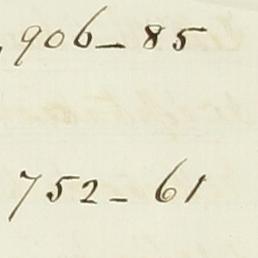 ,906_ 85
752_ 61